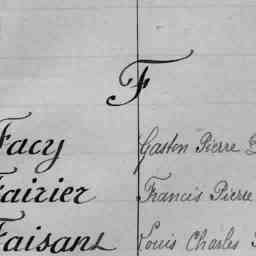 F
Facy Gaston Pierre
Fairier Francis Pierre
Faisant Louis Charles